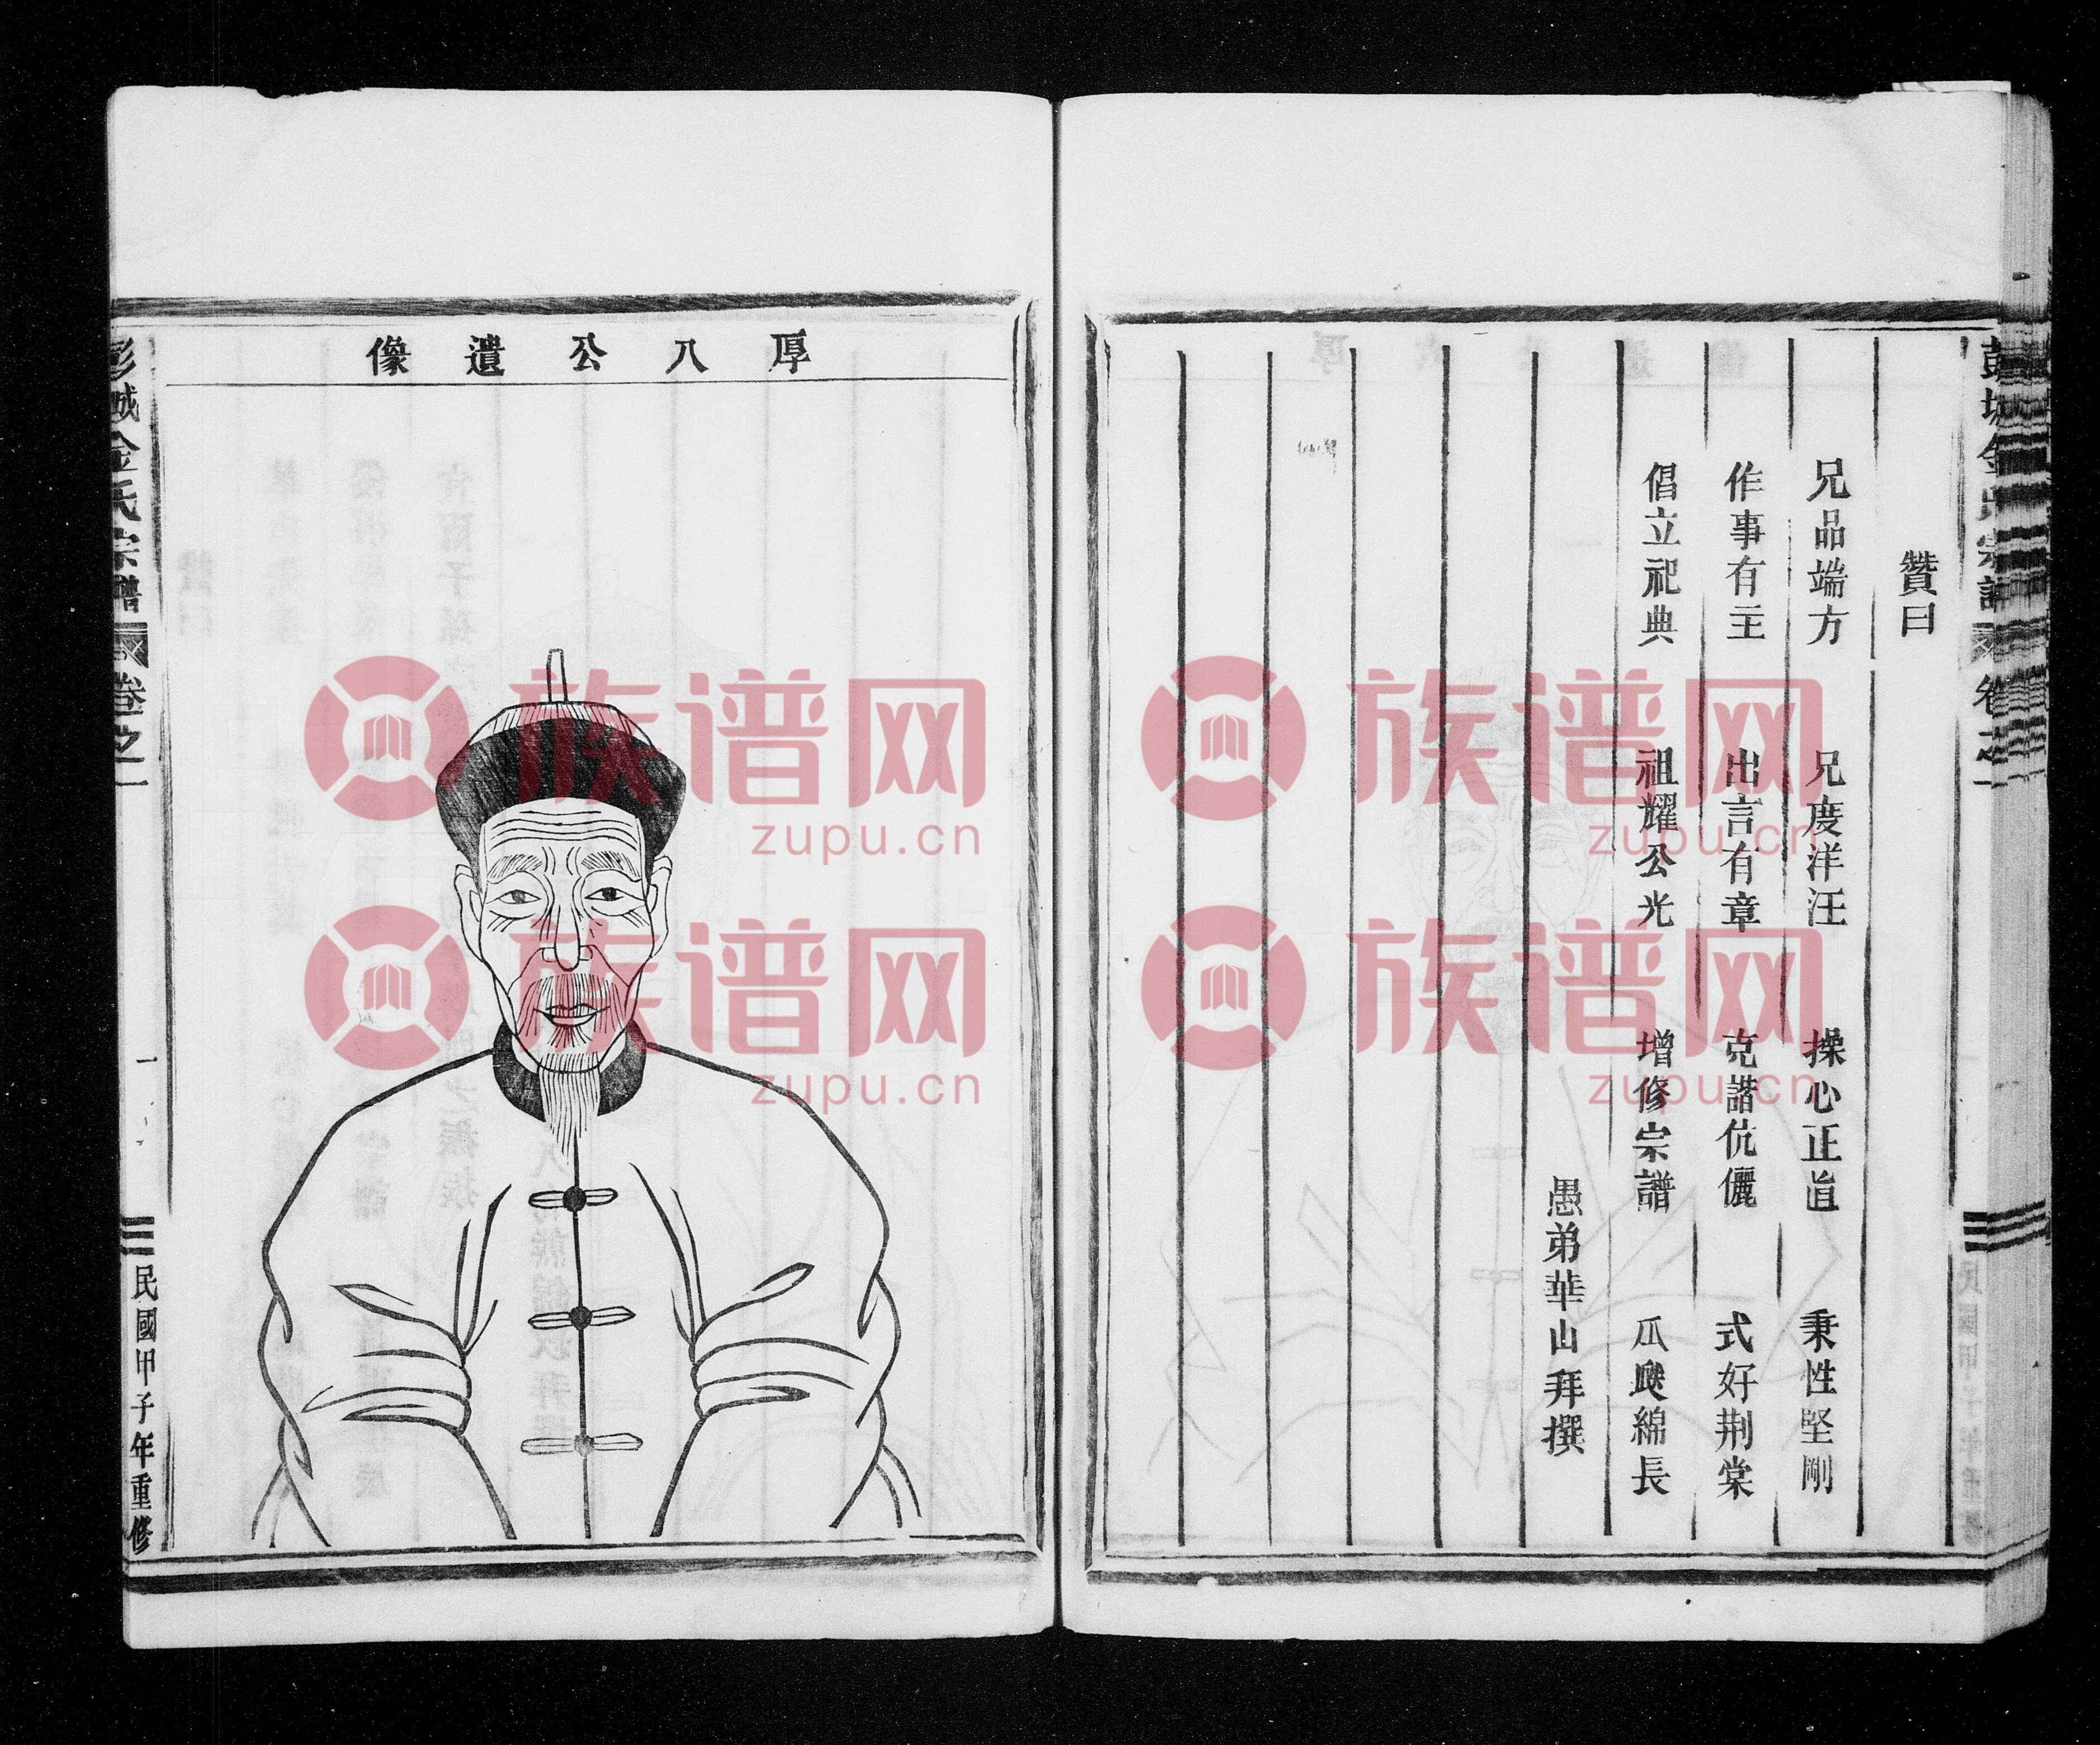 彭城金氏宗譜 卷之一
贊曰
兄品端方 兄度洋汪 操心正直 秉性堅剛
作事有主 出言有章 克諧伉儷 式好荆棠
倡立祀典 祖耀公光 增修宗譜 瓜瓞綿長
愚弟華山拜撰
厚八公遺像
彭城金氏宗譜 卷之一 一 民國甲子年重修
族谱网
zupu.cn
族谱网
zupu.cn
族谱网
zupu.cn
族谱网
zupu.cn